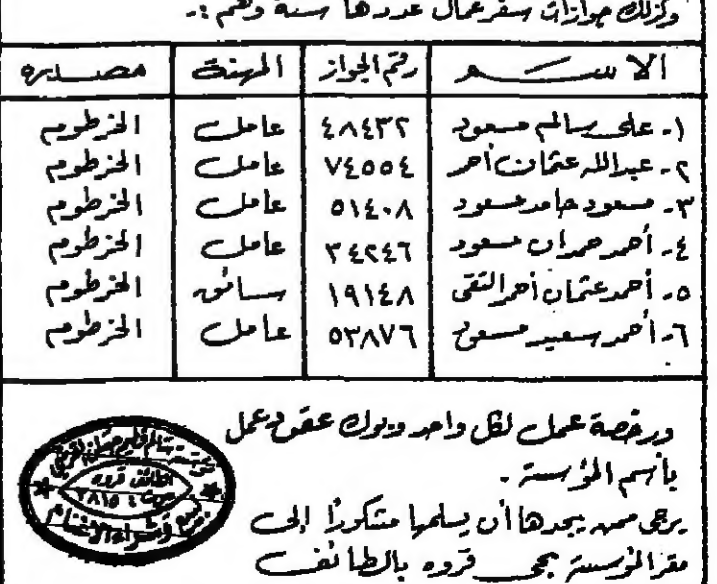 وكذلك جوازات سفر عمال عددها ستة وهم :-
الاسم رقم الجواز المهنة مصدره
١- على سالم مسعود ٤٨٤٣٢ عامل الخرطوم
٢- عبدالله عثمان أحمد ٧٤٥٥٤ عامل الخرطوم
٣- مسعود حامد مسعود ٥١٤٠٨ عامل الخرطوم
٤- أحمد حمدان مسعود ٣٤٢٤٦ عامل الخرطوم
٥- أحمد عثمان أحمد التقى ١٩١٤٨ سائق الخرطوم
٦- أحمد سعيد مسعود ٥٣٨٧٦ عامل الخرطوم
ورخصة عمل لكل واحد وبوك عقود عمل
بأسم المؤسسة .
يرجى ممن يجدها أن يسلمها مشكورًا إلى
مقر المؤسسة بحى قروه بالطائف
الطائف قروه